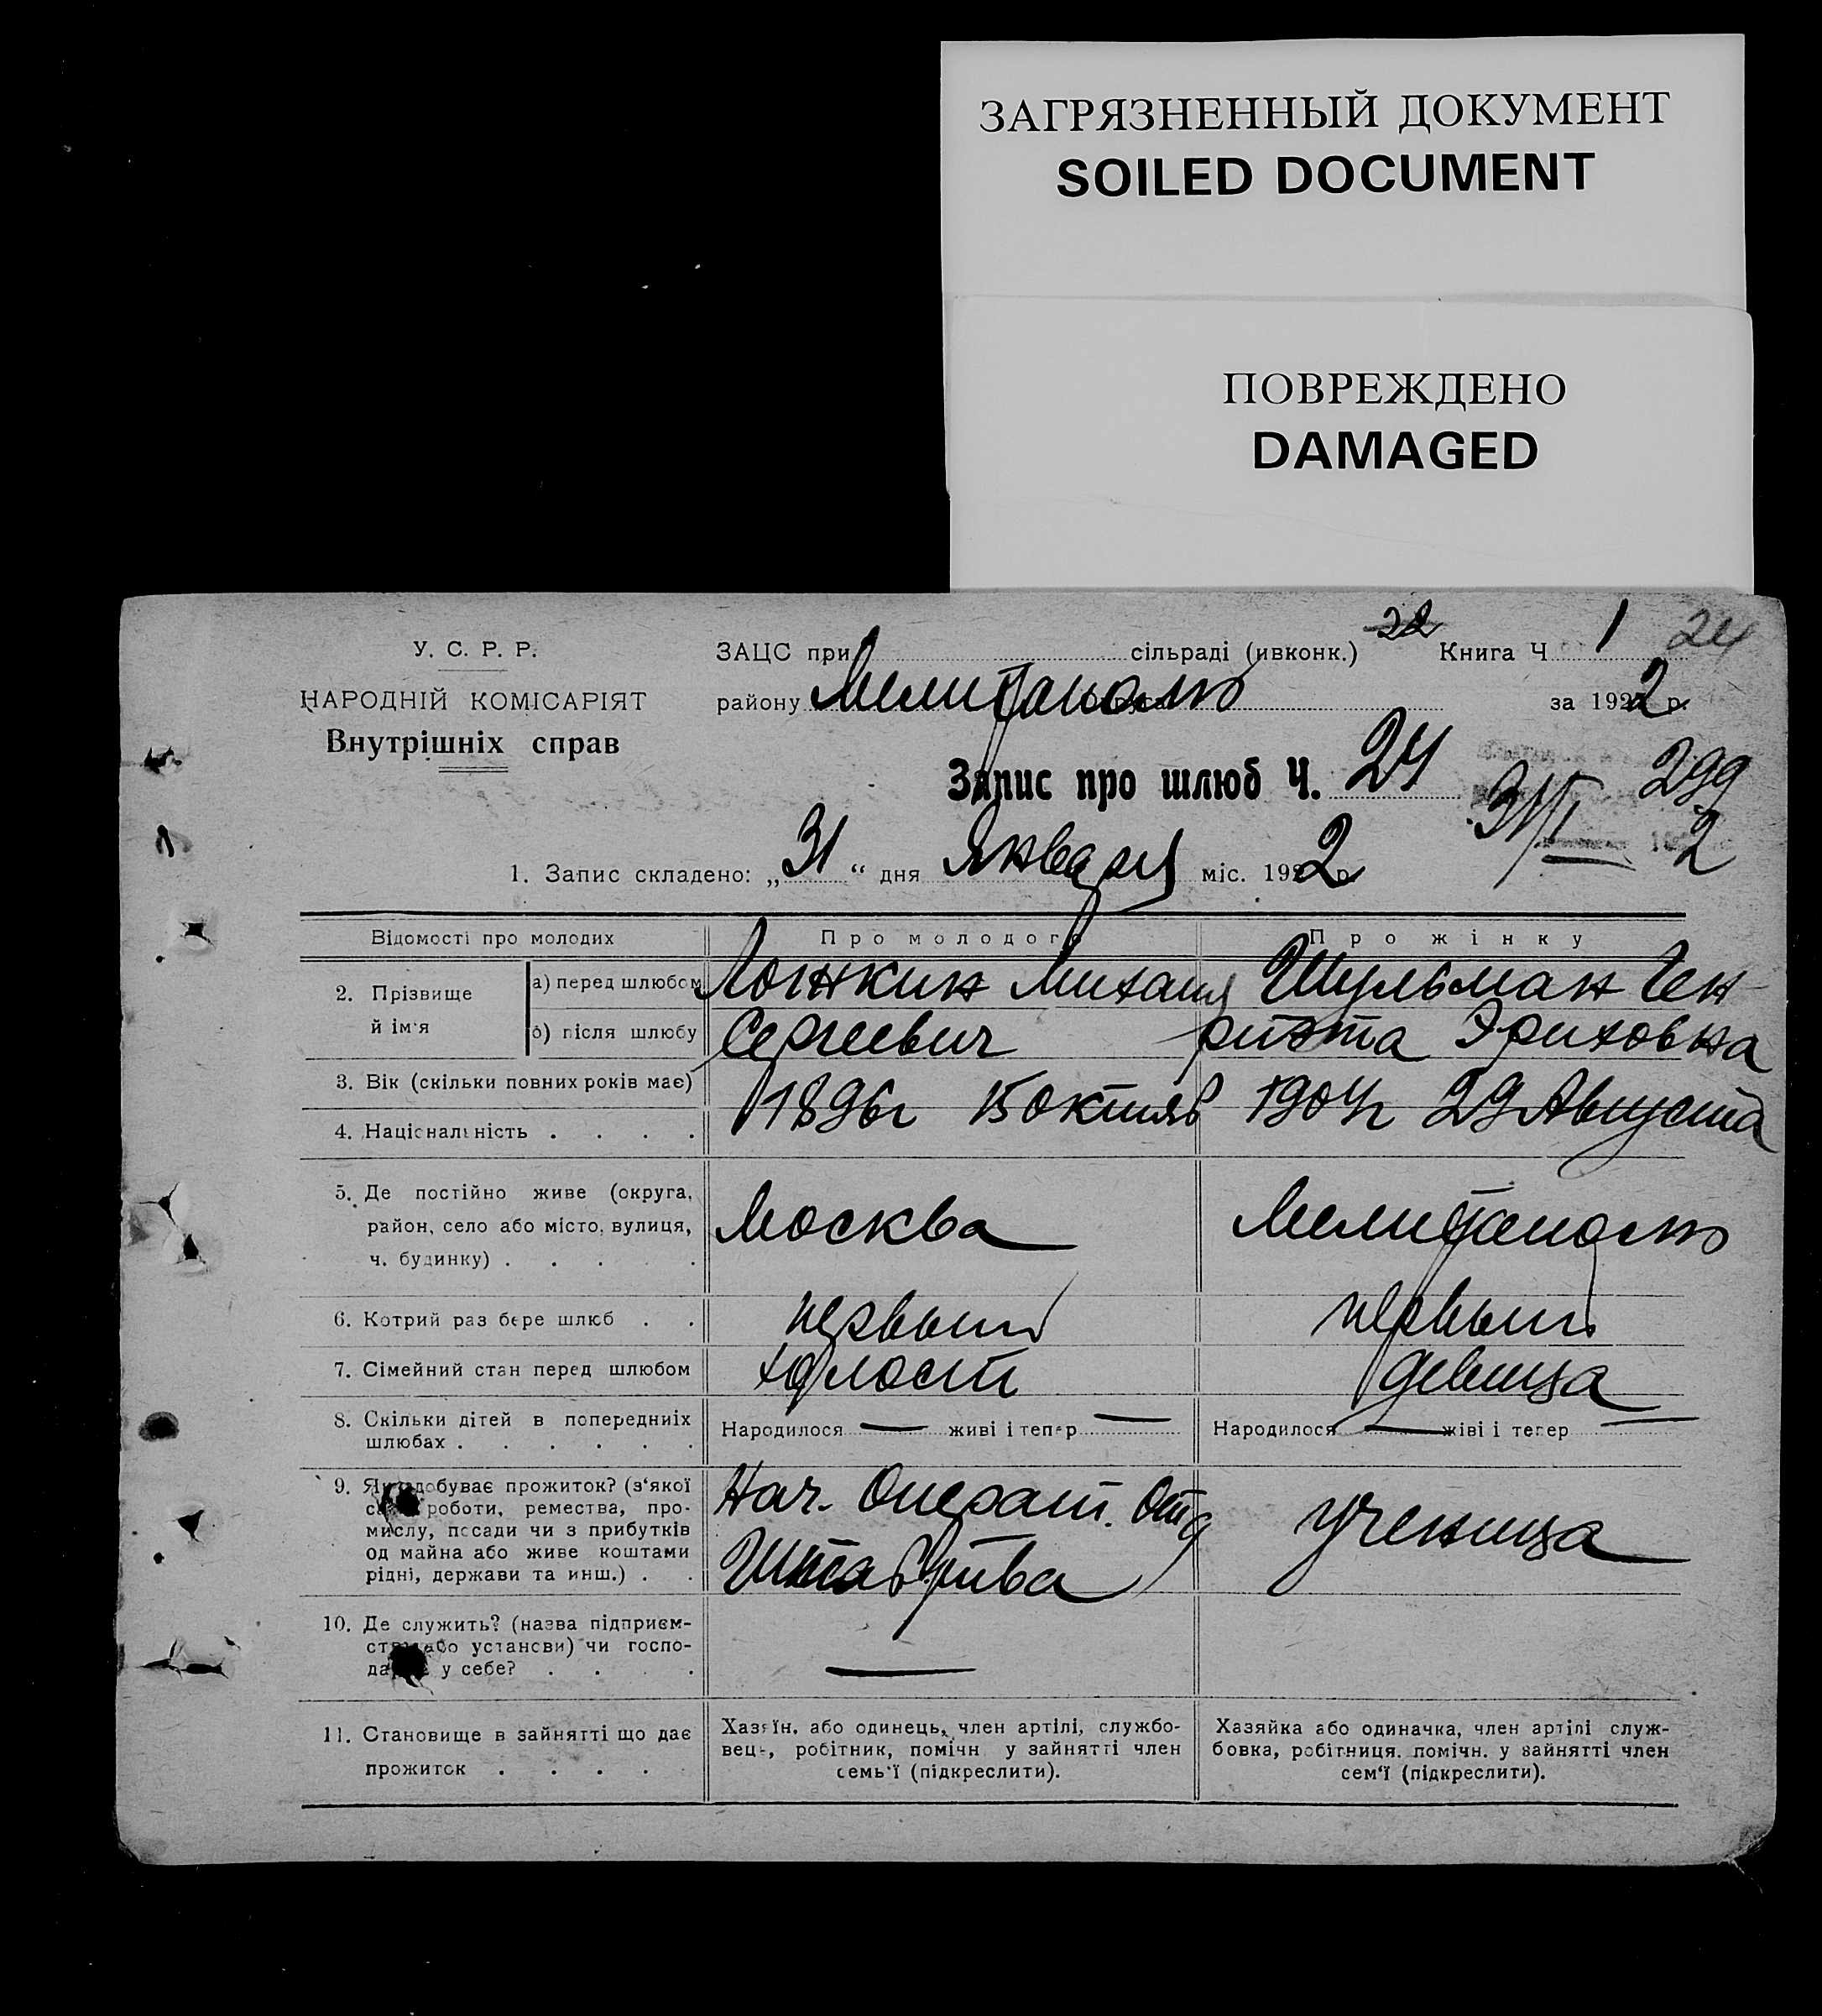 ЗАГРЯЗНЕННЫЙ ДОКУМЕНТ
SOILED DOCUMENT
ПОВРЕЖДЕНО
DAMAGED
У. С. Р. Р.
НАРОДНІЙ КОМІСАРІЯТ
Внутрішніх справ
ЗАЦС при сільраді (ивконк.) 22 Книга Ч 1 24
району Мелитополь за 1922 р.
Запис про шлюб Ч. 24
31/I 299
2
1. Запис складено: „31“ дня Января міс. 1922 р.
Відомості про молодих Про молодого Про жінку
2. Прізвище й ім'я
а) перед шлюбом Михаил Шульман Ген-
б) після шлюбу Сергеевич риэта Эриховна
3. Вік (скільки повних років має)
1896г 15 октяб 1904г 29 Августа
4. Національність . . . .
5. Де постійно живе (округа,
район, село або місто, вулиця, Москва Мелитополь
ч. будинку) . . . . .
6. Котрий раз бере шлюб . . первый первый
7. Сімейний стан перед шлюбом холост девица
8. Скільки дітей в попередниіх Народилося — живі і тепер — Народилося — жіві і тепер —
шлюбах . . . . . .
9. Як здобуває прожиток? (з'якої
роботи, ремества, про-
мислу, посади чи з прибутків
од майна або живе коштами
рідні, держави та инш.) . .
Нач. Операт. Отд
Штаба
ученица
10. Де служить? (назва підприєм-
ства або установи) чи госпо-
дарює у себе? . . . . —
11. Становище в зайнятті що дає
прожиток . . . .
Хазяїн, або одинець, член артілі, службо-
вець, робітник, помічн у зайнятті член
семь'ї (підкреслити).
Хазяйка або одиначка, член артілі служ-
бовка, робітниця, помічн. у зайнятті член
сем'ї (підкреслити).